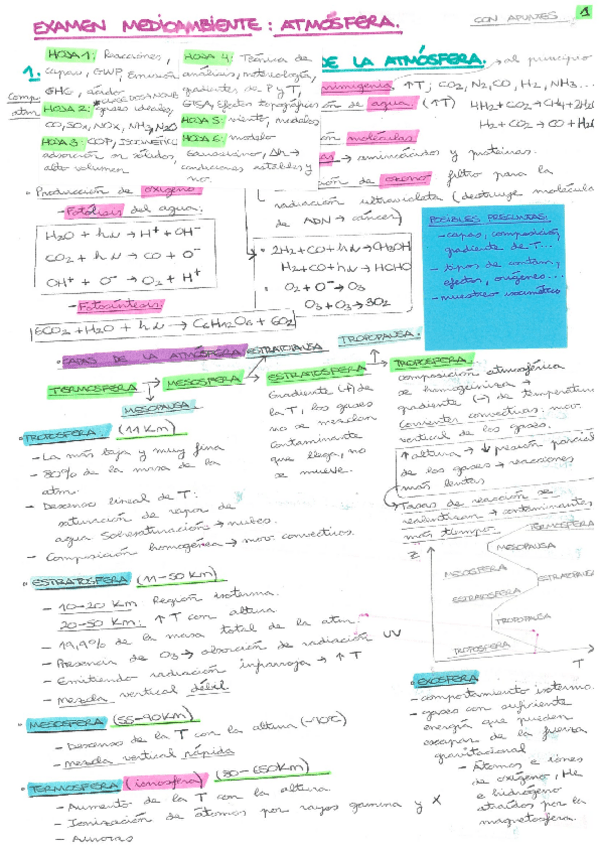 EXAMEN MEDIOAMBIENTE: ATMÓSFERA.
CON APUNTES
1
HOJA 1: Reacciones,
capas, GWP, Emisión
GHG, ácidos
HOJA 2: gases ideales,
CO, SOx, NOx, NH3, N2O
HOJA 3: COP, ISOCINÉTICO
adsorción en sólidos,
alto volumen
HOJA 4: Técnica de
análisis, meteorología,
gradientes de P y T,
GTSA, Efectos topográficos
HOJA 5: viento, modelos
HOJA 6: modelo
Gaussiano, Δh →
condiciones estables y
no
1.
DE LA ATMÓSFERA.
→ al principio
↑T; CO2, N2, CO, H2, NH3...
de agua (↑T) 4H2+CO2→CH4+2H2O
H2+CO2→CO+H2O
moléculas
→ aminoácidos y proteínas.
de ozono filtro para la
radiación ultravioleta (destruye moléculas
de ADN → cáncer)
Producción de oxígeno
- Fotólisis del agua:
H2O + hν → H+ + OH-
CO2 + hν → CO + O-
OH+ + O- → O2 + H+
- Fotosíntesis
6CO2 + H2O + hν → C6H12O6 + 6O2
2H2+CO+hν→CH3OH
H2+CO+hν→HCHO
O2+O-→O3
O3+O3→3O2
POSIBLES PREGUNTAS:
- capas, composición,
gradiente de T...
- tipos de contam,
efectos, orígenes...
- muestreo isocinético
CAPAS DE LA ATMÓSFERA
ESTRATOPAUSA
TROPOPAUSA.
TERMOSFERA → MESOSFERA
ESTRATOSFERA
TROPOSFERA.
MESOPAUSA
Gradiente (+) de
la T, los gases
no se mezclan
Contaminante
que llega, no
se mueve.
composición atmosférica
se homogeniza →
gradiente (-) de temperatura
Corrientes convectivas: mov.
vertical de los gases.
↑altura → ↓presión parcial
de los gases → reacciones
más lentas
Tasas de reacción se
realentizan → contaminantes
más tiempo.
TROPOSFERA. (11 Km)
- La más baja y muy fina
- 80% de la masa de la
atm.
- Descenso lineal de T:
saturación de vapor de
agua Sobresaturación → nubes.
- Composición homogénea → mov convectivos.
ESTRATOSFERA (11-50 Km)
- 10-20 Km Región isoterma.
20-50 Km: ↑T con altura
- 19,9% de la masa total de la atm.
- Presencia de O3 → absorción de radiación UV
- Emitiendo radiación infrarroja → ↑T
- Mezcla vertical débil
MESOSFERA (55-90Km)
- Descenso de la T con la altura
- Mezcla vertical rápida
TERMOSFERA (ionosfera) (90-650Km)
- Aumento de la T con la altura.
- Ionización de átomos por rayos gamma y X
- Auroras
Z
TERMOSFERA
MESOPAUSA
MESOSFERA
ESTRATOPAUSA
ESTRATOSFERA
TROPOPAUSA
TROPOSFERA
T
EXOSFERA
- comportamiento isotermo.
- gases con suficiente
energía que pueden
escapar de la fuerza
gravitacional
- Átomos e iones
de oxígeno, He
e hidrógeno
atraídos por la
magnetosfera.